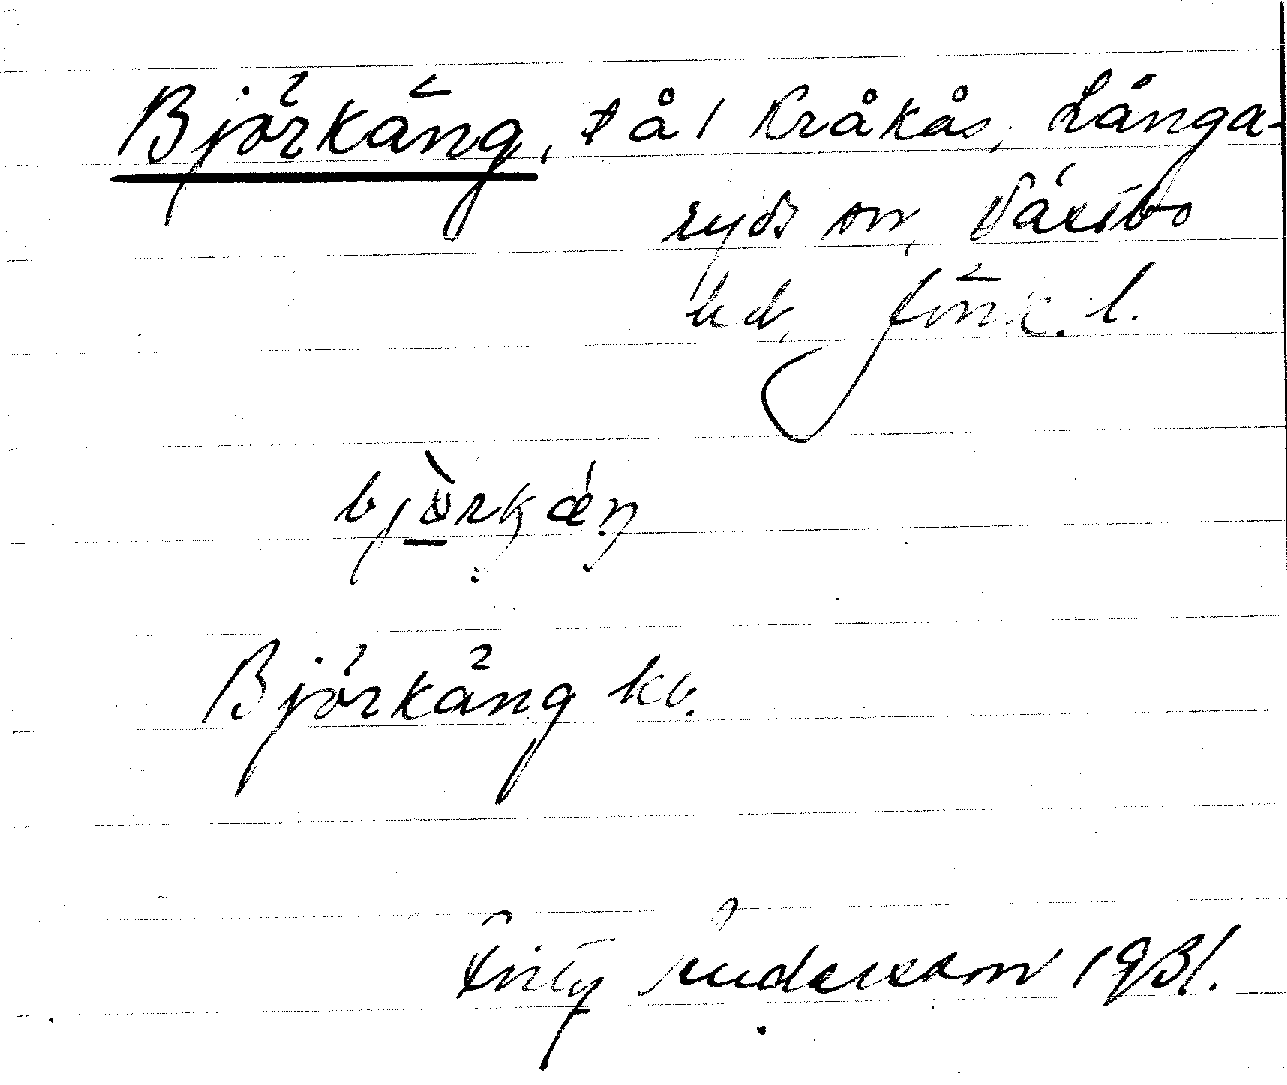 Björkäng, t å 1 Kråkås, Långa-
ryds sn, Västbo
hd, Jönk. l.
björkäŋ
Björkäng kb.
Andersson 1931.